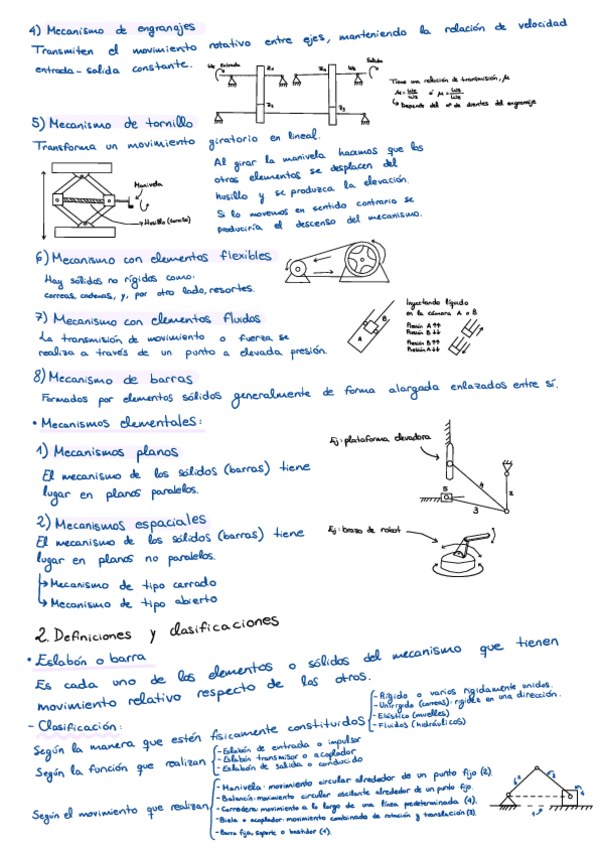 4) Mecanismo de engranajes
Transmiten el movimiento rotativo entre ejes, manteniendo la relación de velocidad
entrada-salida constante.
Entrada
Salida
Tiene una relación de transmisión, μ
Depende del nº de dientes del engranaje
5) Mecanismo de tornillo
Transforma un movimiento giratorio en lineal.
Manivela
Husillo (tornillo)
Al girar la manivela hacemos que los
otros elementos se desplacen del
husillo y se produzca la elevación.
Si lo movemos en sentido contrario se
produciría el descenso del mecanismo.
6) Mecanismo con elementos flexibles
Hay sólidos no rígidos como:
correas, cadenas, y, por otro lado, resortes.
7) Mecanismo con elementos fluidos
La transmisión de movimiento o fuerza se
realiza a través de un punto a elevada presión.
A
B
Inyectando líquido
en la cámara A o B
Presión A↑↑
Presión B↓↓
Presión B↑↑
Presión A↓↓
8) Mecanismo de barras
Formados por elementos sólidos generalmente de forma alargada enlazados entre sí.
• Mecanismos elementales:
1) Mecanismos planos
El mecanismo de los sólidos (barras) tiene
lugar en planos paralelos.
Ej: plataforma elevadora
4
5
3
2
2) Mecanismos espaciales
El mecanismo de los sólidos (barras) tiene
lugar en planos no paralelos.
Ej: brazo de robot
↳ Mecanismo de tipo cerrado
↳ Mecanismo de tipo abierto
2. Definiciones y clasificaciones
• Eslabón o barra
Es cada uno de los elementos o sólidos del mecanismo que tienen
movimiento relativo respecto de los otros.
- Clasificación:
Según la manera que estén físicamente constituidos
- Rígido o varios rígidamente unidos.
- Unirrígido (correas): rigidez en una dirección.
- Elástico (muelles)
- Fluidos (hidráulicos)
Según la función que realizan
- Eslabón de entrada o impulsor
- Eslabón transmisor o acoplador
- Eslabón de salida o conducido
Según el movimiento que realizan
- Manivela: movimiento circular alrededor de un punto fijo (2).
- Balancín: movimiento circular oscilante alrededor de un punto fijo.
- Corredera: movimiento a lo largo de una línea predeterminada (4).
- Biela o acoplador: movimiento combinado de rotación y translación (3).
- Barra fija, soporte o bastidor (1).